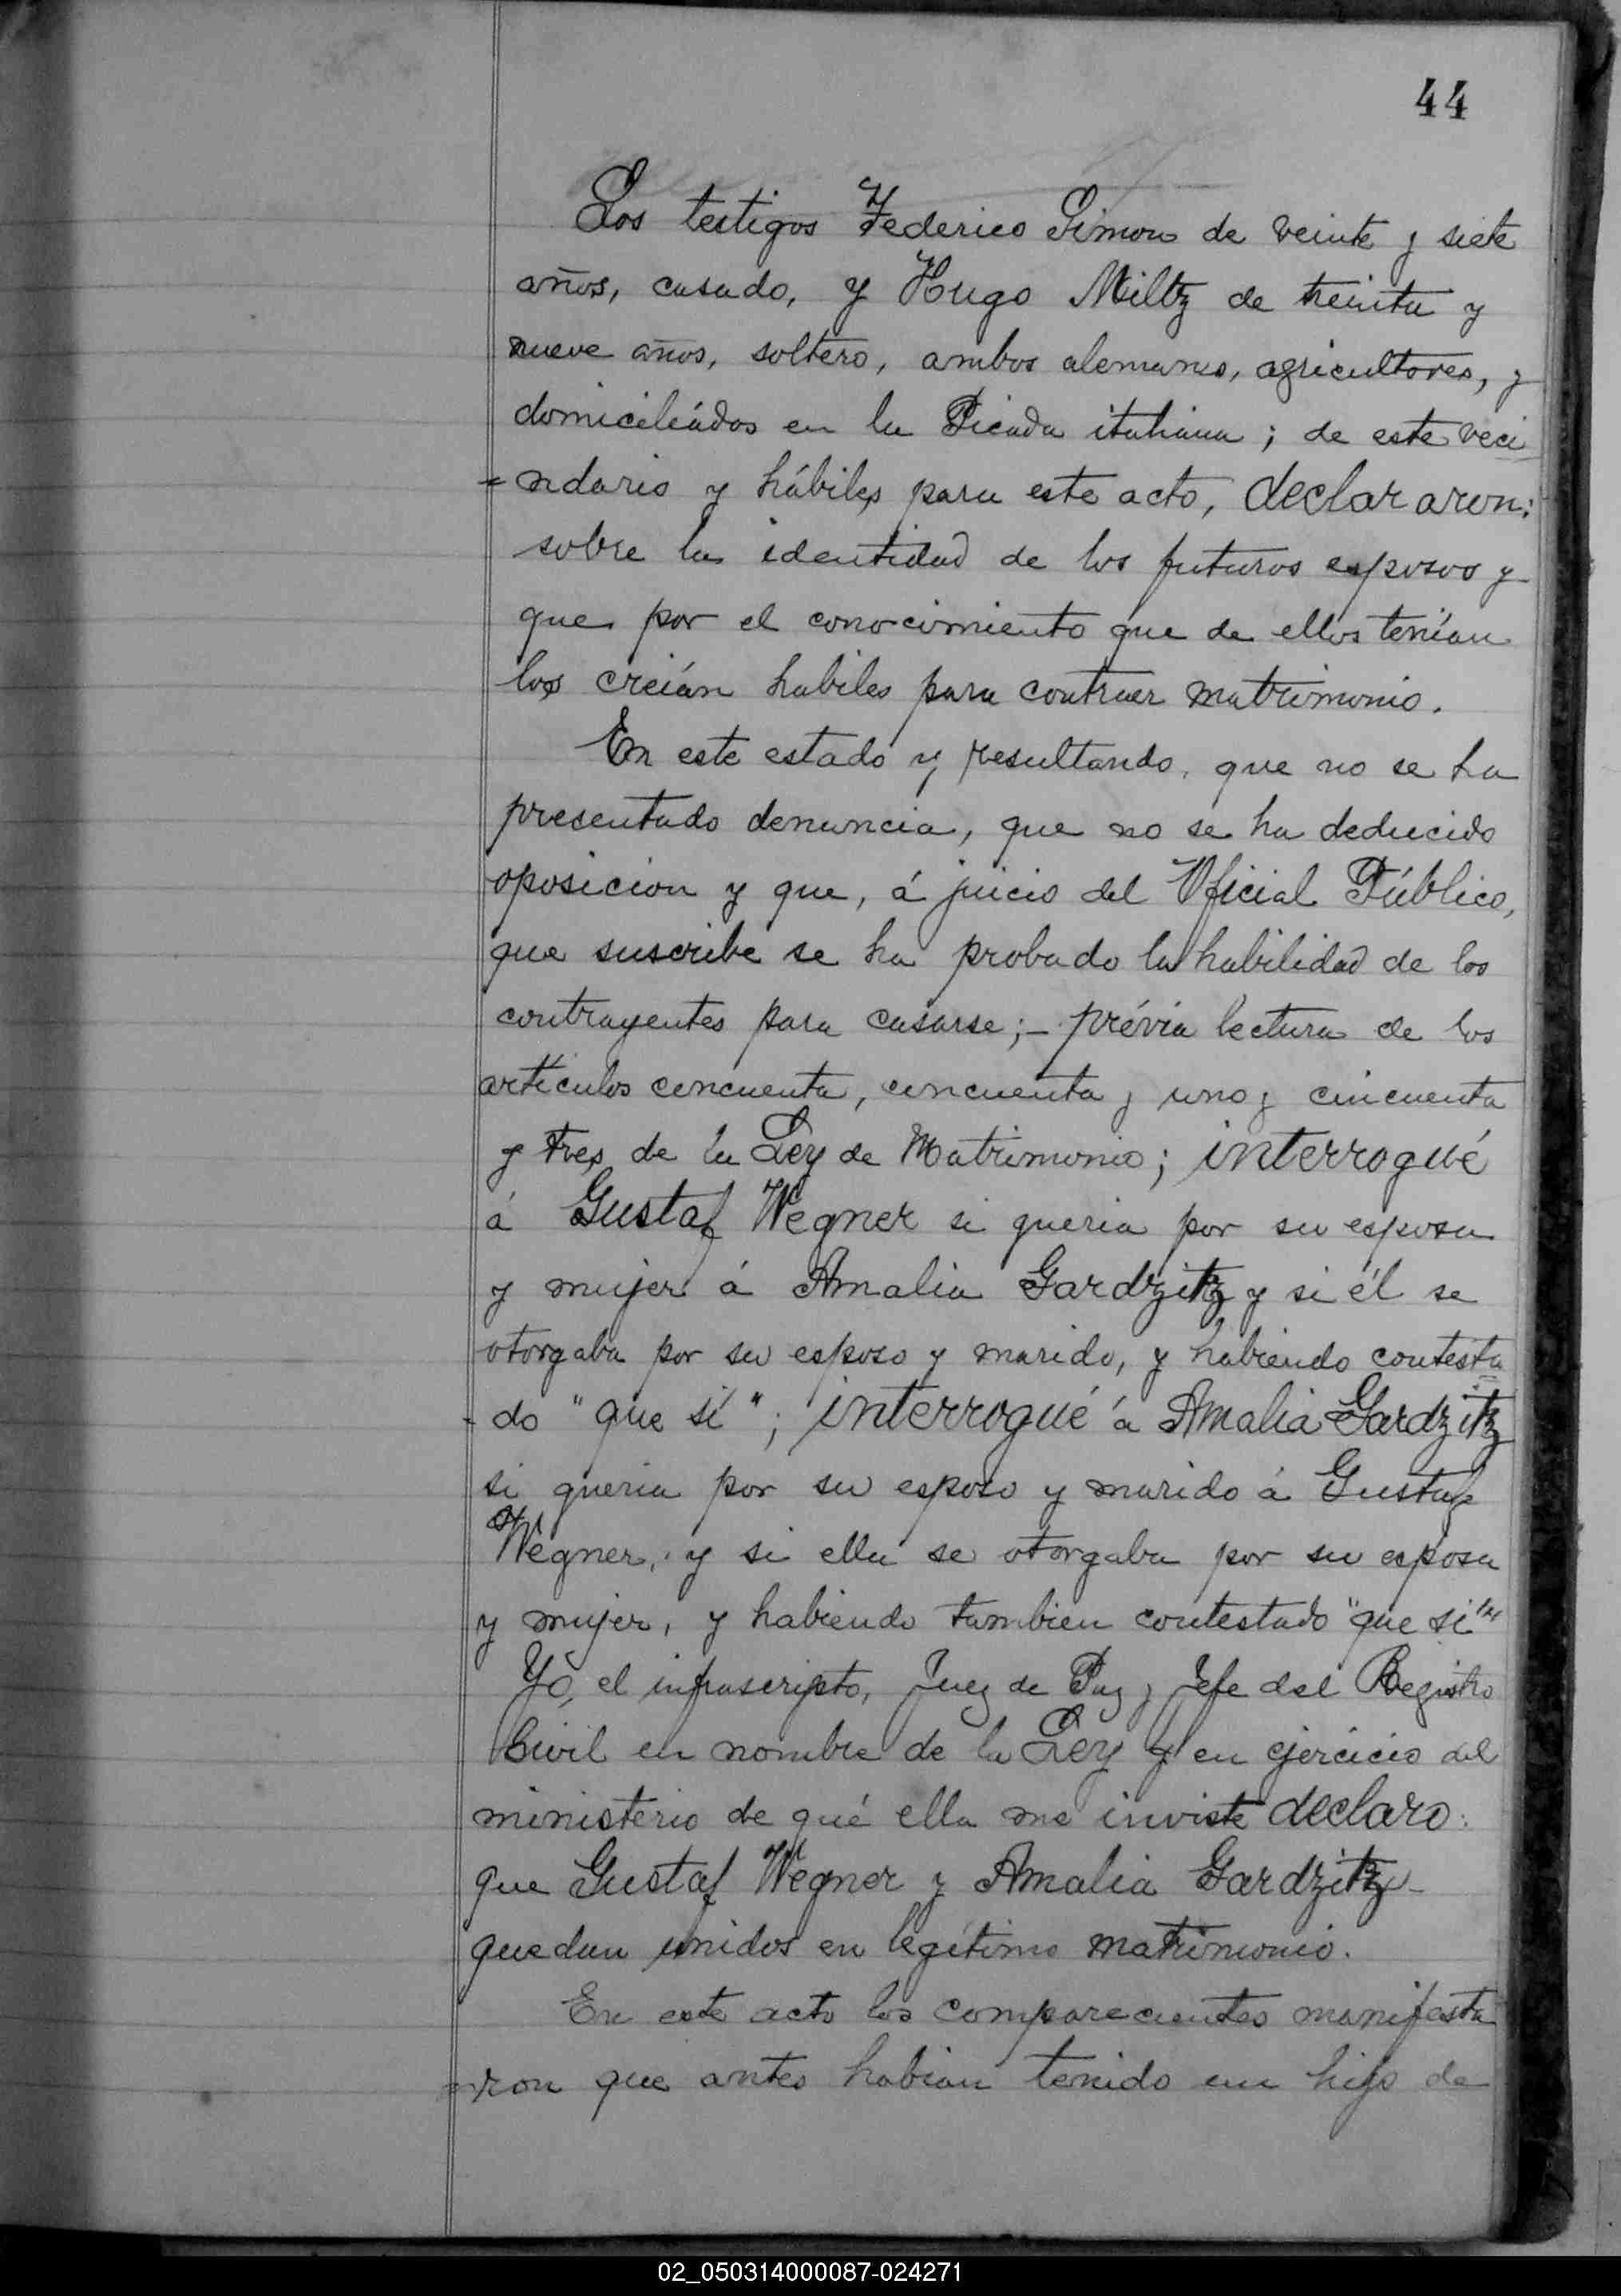 44
Los testigos Federico Simon de veinte y siete
años, casado, y Hugo Miltz de treinta y
nueve años, soltero, ambos alemanes, agricultores, y
domiciliádos en la Picada italiana; de este veci
=ndario y hábiles para este acto, declararon:
sobre la identidad de los futuros esposos y
que por el conocimiento que de ellos tenían
los creían habiles para contraer matrimonio.
En este estado y resultando, que no se ha
presentado denuncia, que no se ha deducido
oposicion y que, á juicio del Oficial Público,
que suscribe se ha probado la habilidad de los
contrayentes para casarse;- prévia lectura de los
artículos cincuenta, cincuenta y uno y cincuenta
y tres de la Ley de Matrimonio; interrogué
á Gustaf Wegner si queria por su esposa
y mujer á Amalia Gardzitz y si él se
otorgaba por su esposo y marido, y habiendo contesta
-do "que sí"; interrogué á Amalia Gardzitz
si queria por su esposo y marido á Gustaf
Wegner, y si ella se otorgaba por su esposa
y mujer, y habiendo tambien contestado "que sí"
Yó, el infrascripto, Juez de Paz y Jefe del Registro
Civil en nombre de la Ley y en ejercicio del
ministerio de qué ella me inviste declaro:
que Gustaf Wegner y Amalia Gardzitz
quedan unidos en legítimo matrimonio.
En este acto los comparecientes manifesta
=ron que antes habian tenido un hijo de
02_050314000087-024271